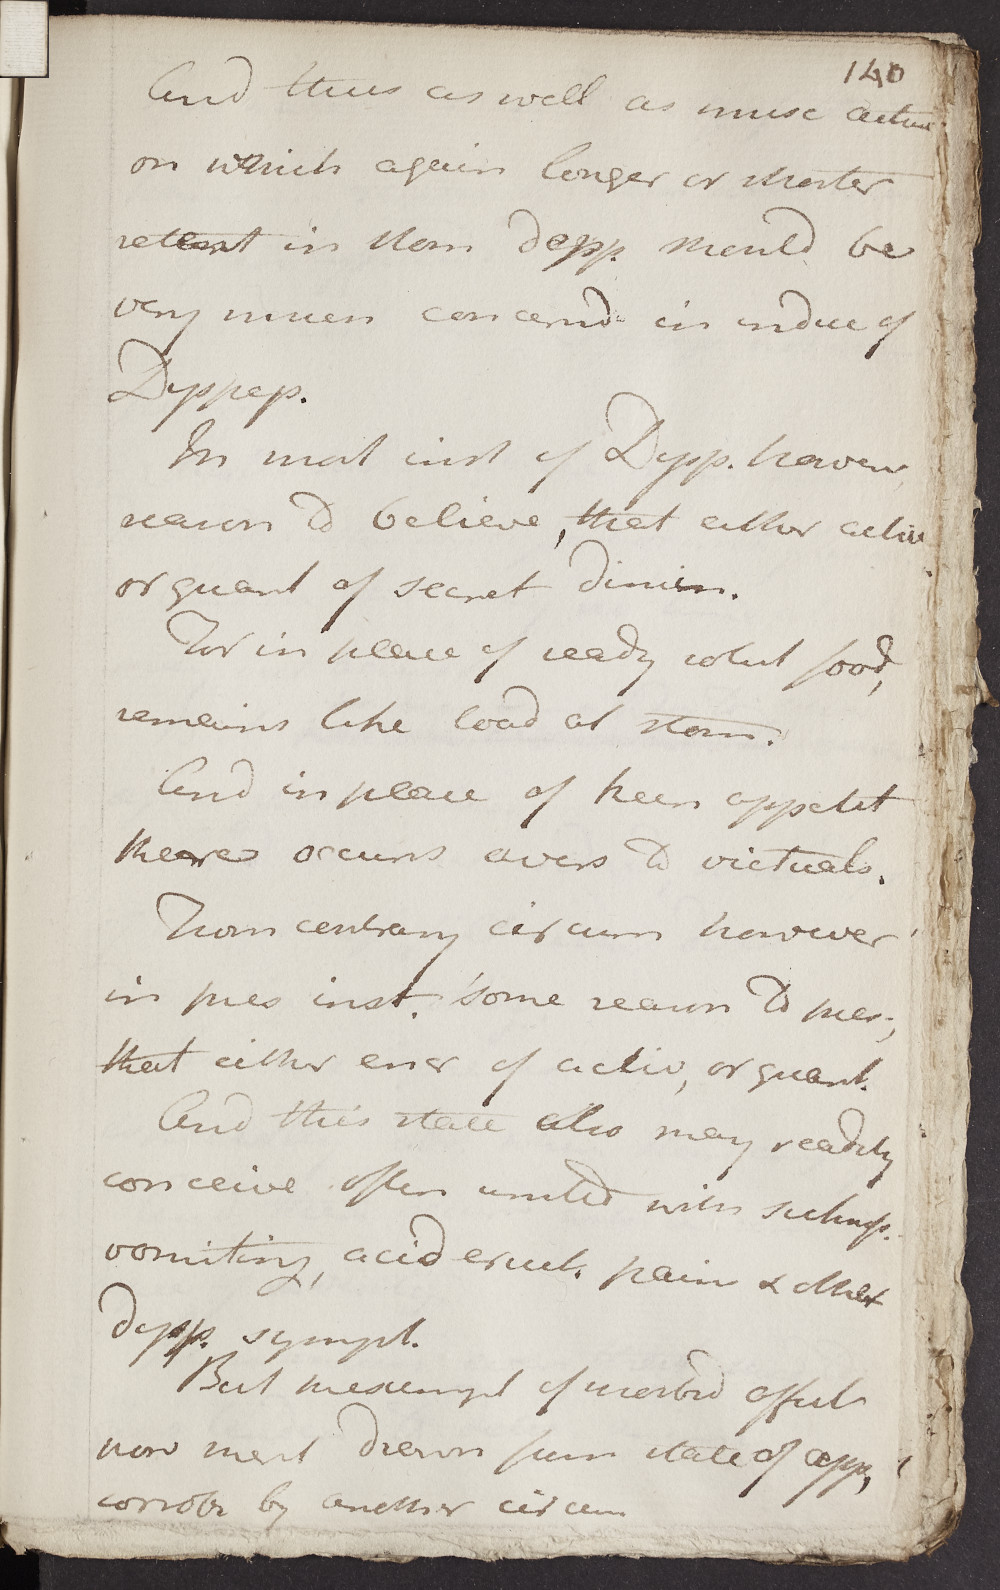 140
And thus as well as musc action
on which again longer or shorter
retent in stom depp. should be
very much concernd in induc of
Dyspep.
In most inst of Dysp. however
reason to believe, that either activ
or quant of secret dimin.
For in place of ready solut food,
remains like load at stom.
And in place of keen appetit
there occurs avers to victuals.
From contrary circum however
in pres inst. some reason to pres,
that either encr of activ, or quant.
And this state also may readily
conceive often united with
vomiting, acid eruct. pain & other
dysp. sympt.
But presumpt of morbid affect
now ment drawn from state of app,
corrob by another circum